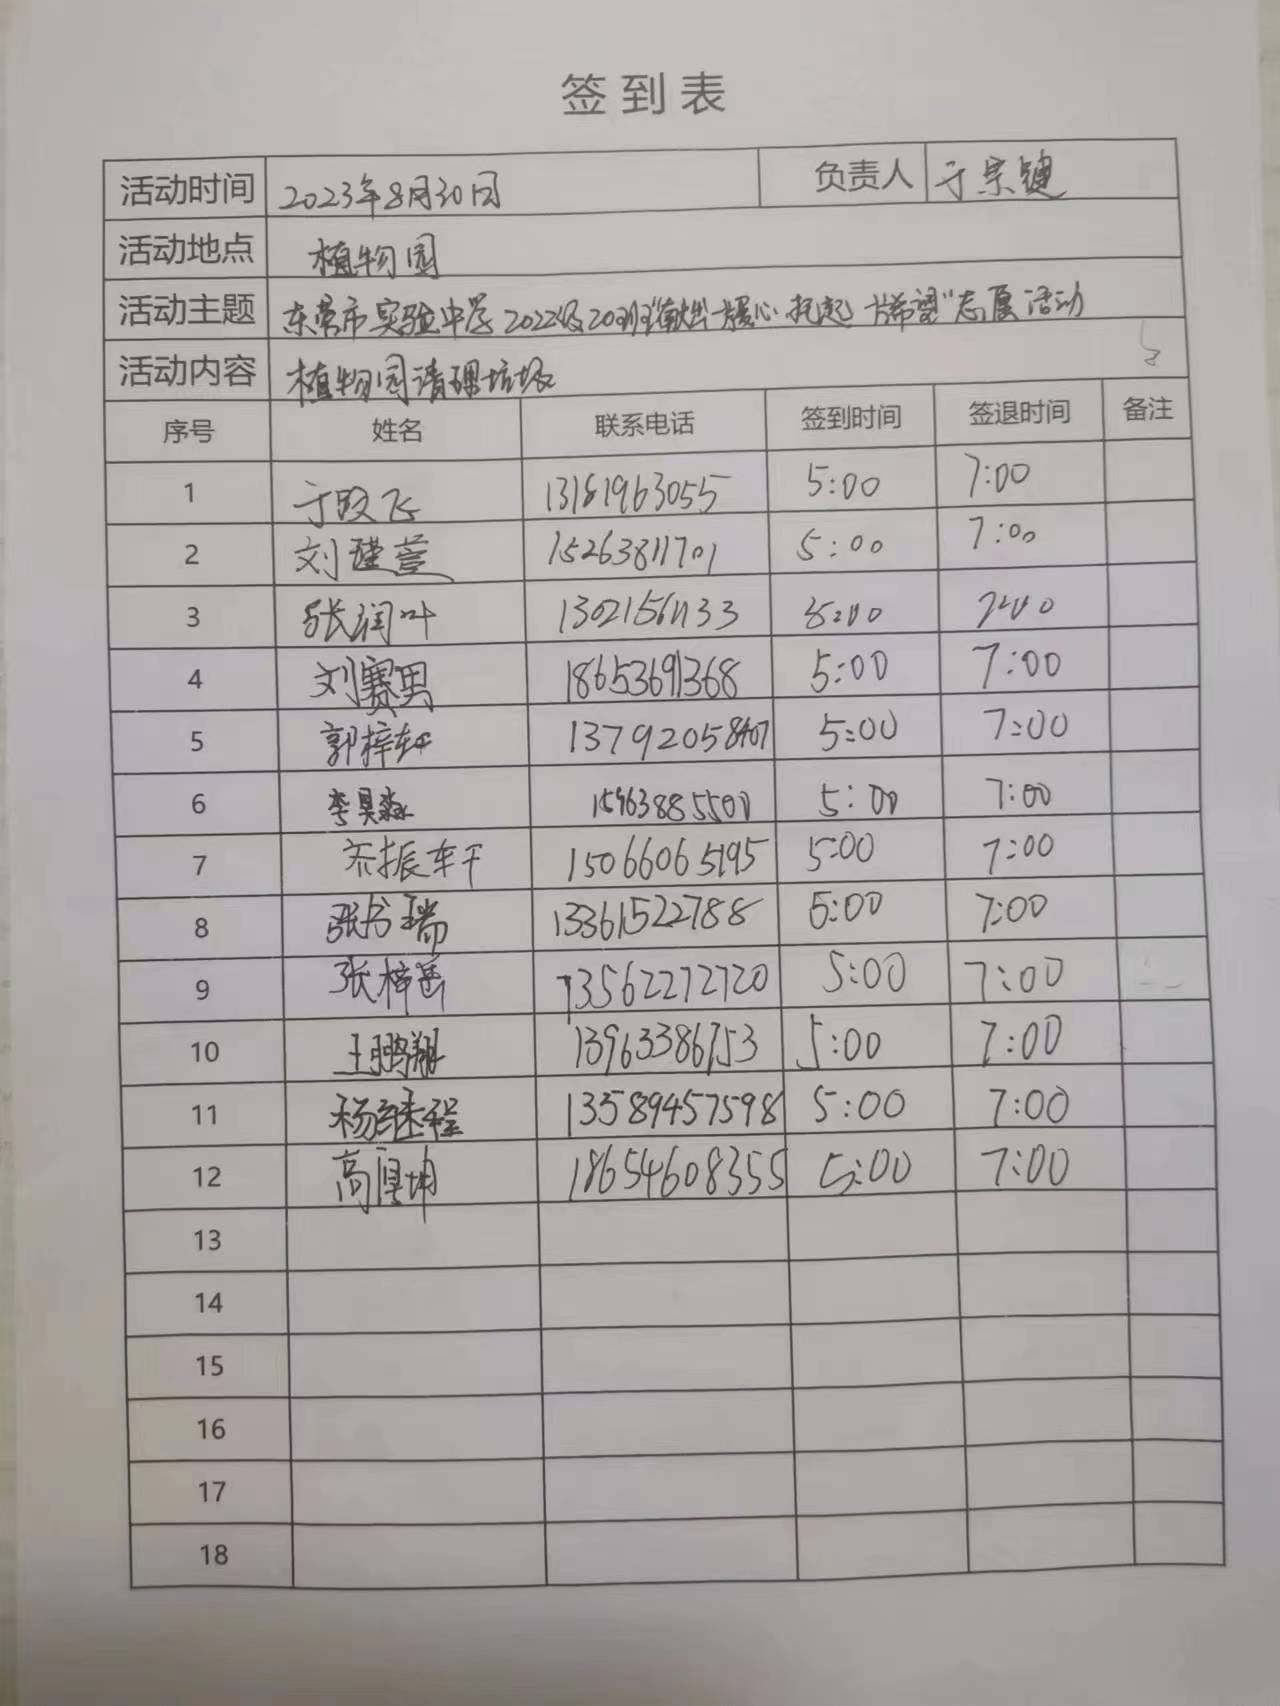 签到表
活动时间 2023年8月30日 负责人 于宗键
活动地点 植物园
活动主题 东营市实验中学2022级20班"献出一片暖心托起一片希望"志愿活动
活动内容 植物园清理垃圾
序号 姓名 联系电话 签到时间 签退时间 备注
1 于政飞 13181963055 5:00 7:00
2 刘瑾萱 15263811701 5:00 7:00
3 张润叶 13021561133 5:00 7:00
4 刘赛男 18653691368 5:00 7:00
5 郭梓轩 5:00 7:00
6 李昊淼 15963885500 5:00 7:00
7 乔振轩 15066065195 5:00 7:00
8 张书瑞 13361522788 5:00 7:00
9 张梓岳 13562272720 5:00 7:00
10 王鹏翔 13963386753 5:00 7:00
11 杨继程 13589457598 5:00 7:00
12 高厚坤 18654608355 5:00 7:00
13
14
15
16
17
18